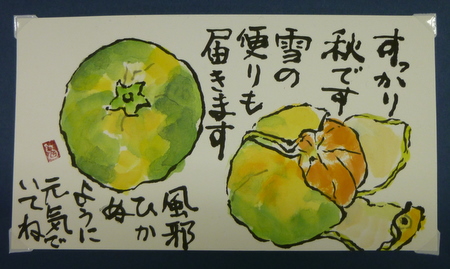 すっかり
秋です
雪の
便りも
届きます
風邪
ひか
ぬ
ように
元気で
いてね